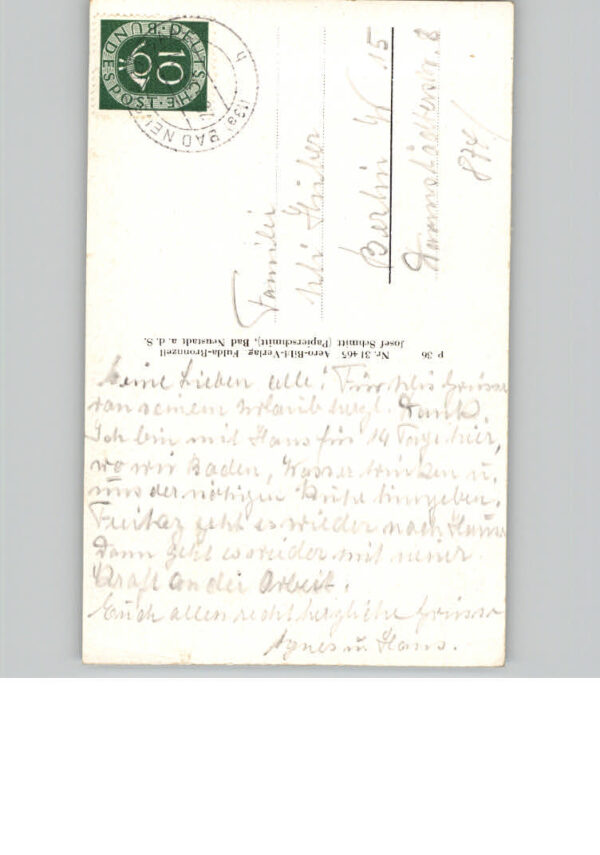 DEUTSCHE BUNDESPOST
10
BAD NEU
Familie
Huber
Berlin W 15
Darmstädterstr. 8
P 36 Nr. 31 465 Aero-Bild-Verlag Fulda-Bronnzell
Josef Schmitt (Papierschmitt), Bad Neustadt a. d. S.
Meine Lieben alle! Für Grüsse
von seinem Urlaub hergl. Dank.
Ich bin mit Hans für 14 Tage hier,
wo wir Baden, Wasser trinken u.
uns der nötigen Ruhe hingeben.
Freitag geht es wieder nach Hause
Dann geht es wieder mit neuer
Kraft an die Arbeit.
Euch allen recht herzliche Grüsse
Agnes u Hans.